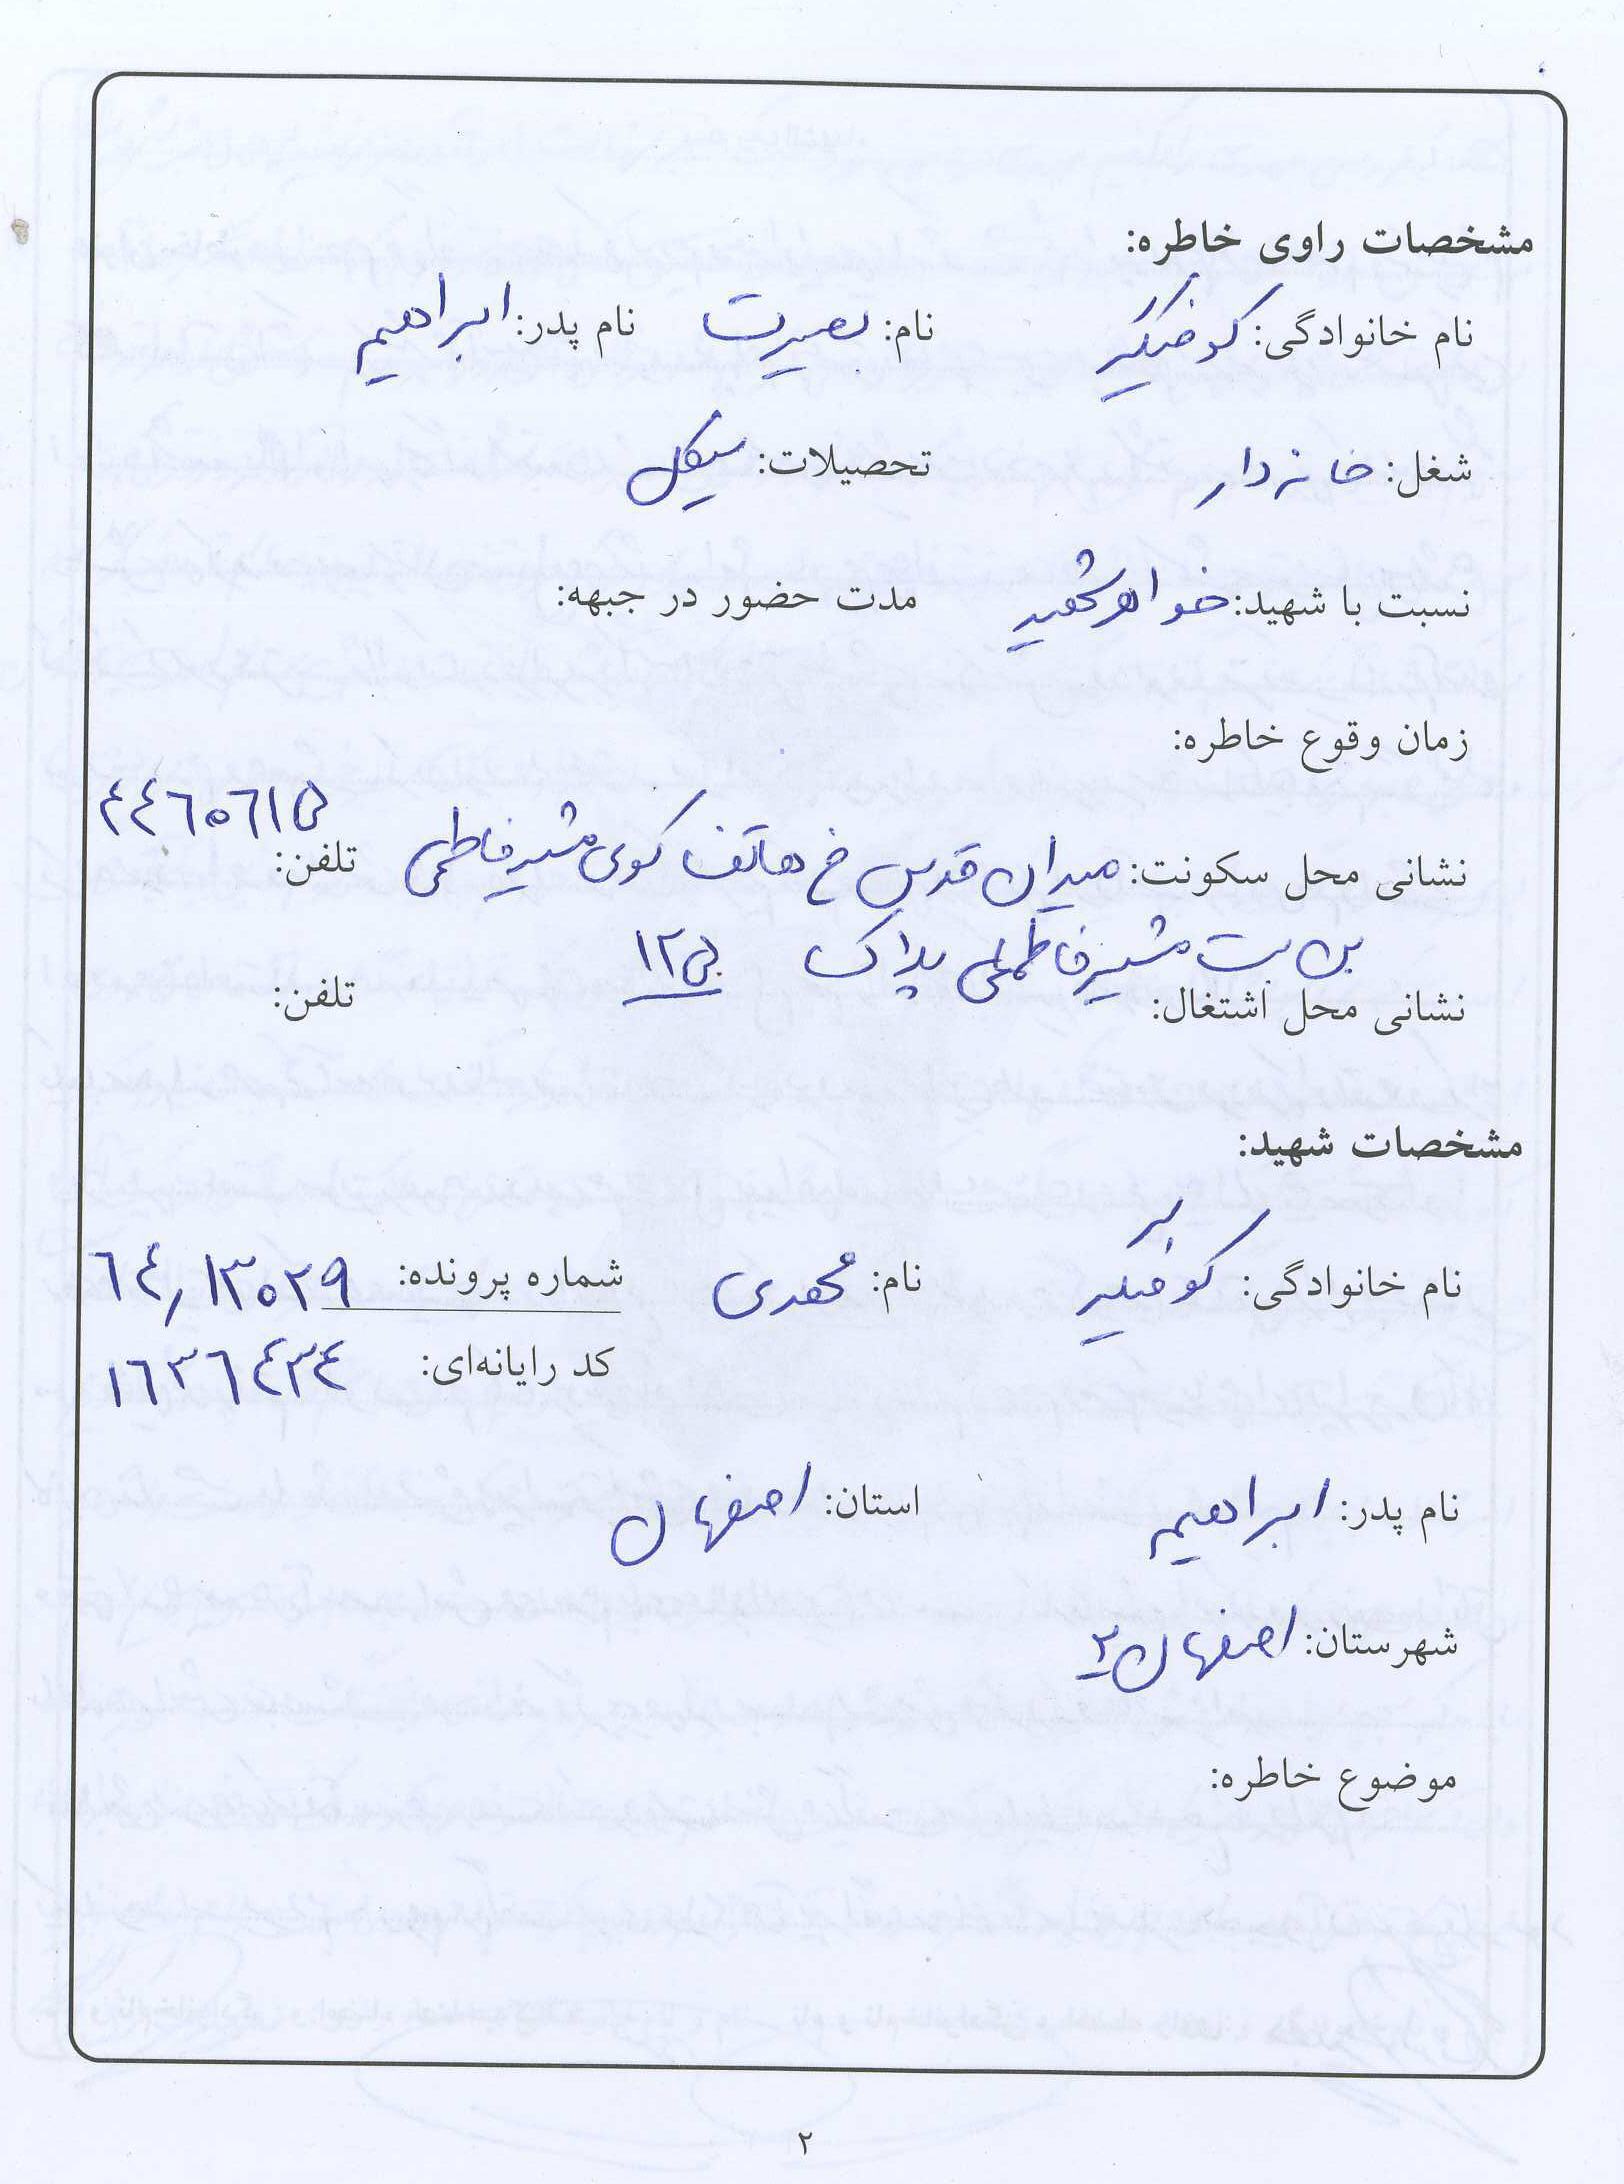 مشخصات راوی خاطره:
نام خانوادگی: کوفیگر نام: بصیرت نام پدر: ابراهیم
شغل: خانه دار تحصیلات: سیکل
نسبت با شهید: خواهر شهید مدت حضور در جبهه:
زمان وقوع خاطره:
نشانی محل سکونت: میدان قدس خ هاتف کوی مشیر فاطمی تلفن: ۴۴۶۵۶۱۵
بن بست مشیر فاطمی پلاک ۱۲۵
نشانی محل اشتغال: تلفن:
مشخصات شهید:
نام خانوادگی: کوفیگر نام: مهدی شماره پرونده: ۶۴٫۱۳۰۲۹
کد رایانه‌ای: ۱۶۳۶۴۳۴
نام پدر: ابراهیم استان: اصفهان
شهرستان: اصفهان ۲
موضوع خاطره:
۲